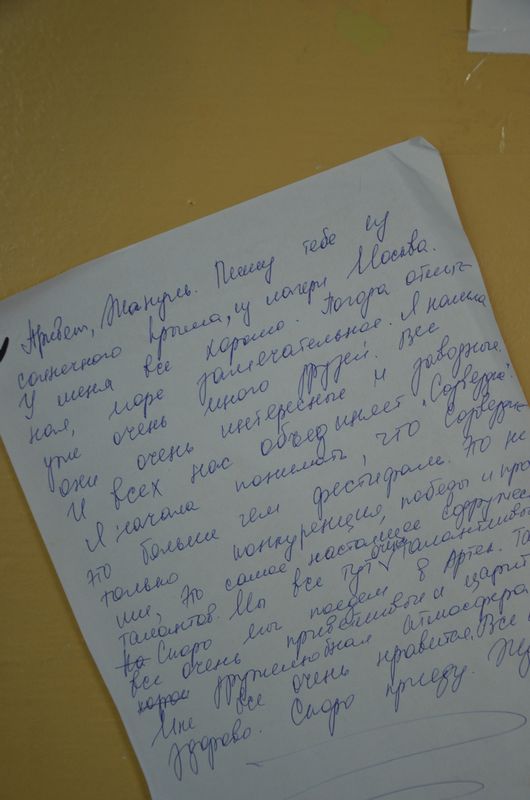 Привет, Жануль. Пишу тебе из
солнечного Крыма, из лагеря Москва.
У меня все хорошо. Погода отлич-
ная, море замечательное. Я нашла
уже очень много друзей. Все
они очень интересные и задорные.
И всех нас объединяет "Созвездие".
Я начала понимать, что Созвезди-
это больше чем фестиваль. Это не
только конкуренция, победы и про
ши, это самое настоящее содружес
талантов. Мы все тут очень талантливы
Но Скоро мы поедем в Артек. Та
все очень приветливые и царит
дружелюбная атмосфера.
Мне все очень нравится. Все
здорово. Скоро приеду.